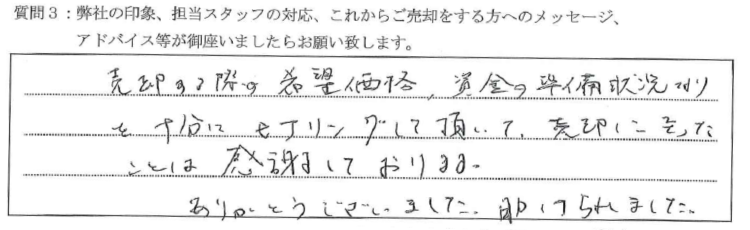 質問３：弊社の印象、担当スタッフの対応、これからご売却をする方へのメッセージ、
アドバイス等が御座いましたらお願い致します。
売却する際の希望価格、資金の準備状況
を十分にヒアリングして頂いて、売却に至った
ことは感謝しております。
ありがとうございました。助けられました。